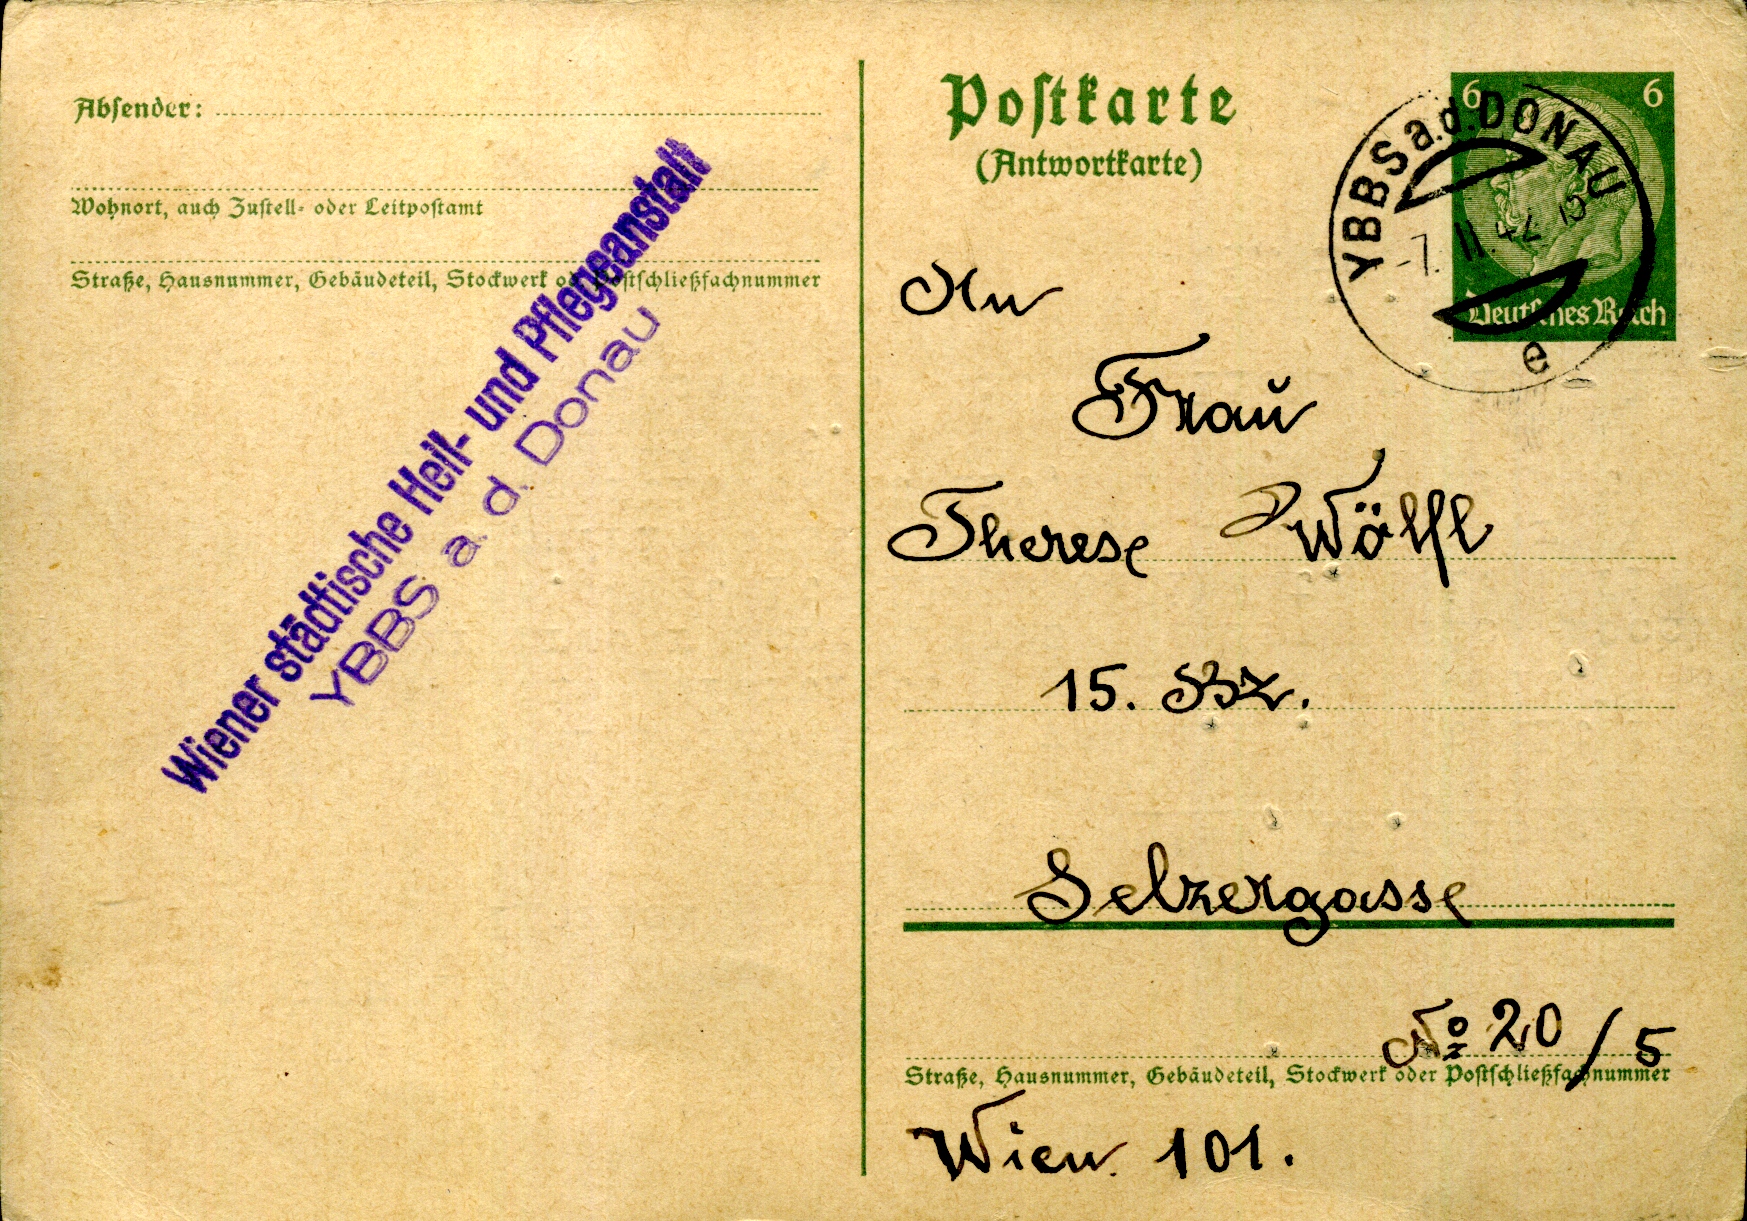 Absender:
Wohnort, auch Zustell- oder Leitpostamt
Straße, Hausnummer, Gebäudeteil, Stockwerk oder Postschließfachnummer
Wiener städtische Heil- und Pflegeanstalt
YBBS a. d. Donau
Postkarte
(Antwortkarte)
6 6
YBBS a.d. DONAU
-7.II.42
e
Deutsches Reich
An
Frau
Therese Wölfl
15. Bz.
Selzergasse
No 20/5
Straße, Hausnummer, Gebäudeteil, Stockwerk oder Postschließfachnummer
Wien 101.